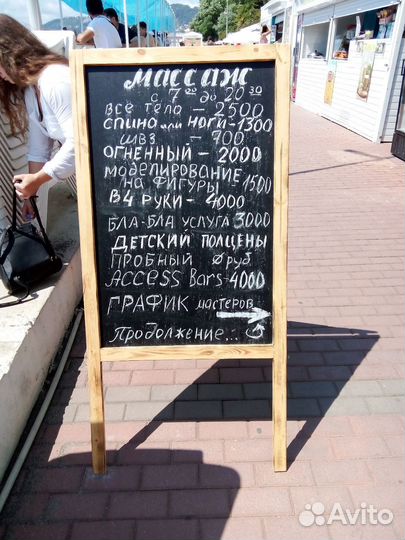 массаж
с 7 00 до 20 30
всё тело - 2500
спина или ноги - 1300
швз - 700
огненный - 2000
моделирование
на фигуры 1500
в 4 руки - 4000
бла-бла услуга 3000
детский полцены
пробный 0 руб
Access Bars - 4000
график мастеров
продолжение...
Avito